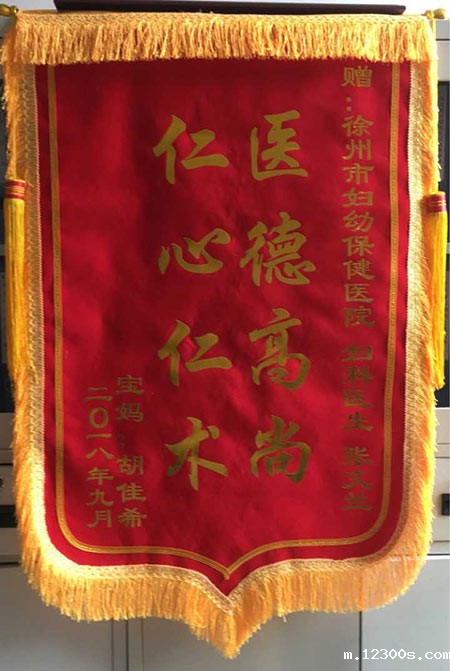 赠：徐州市妇幼保健医院 妇科医生 张文兰
医德高尚
仁心仁术
宝妈：胡佳希
二〇一八年九月
m.12300s.com